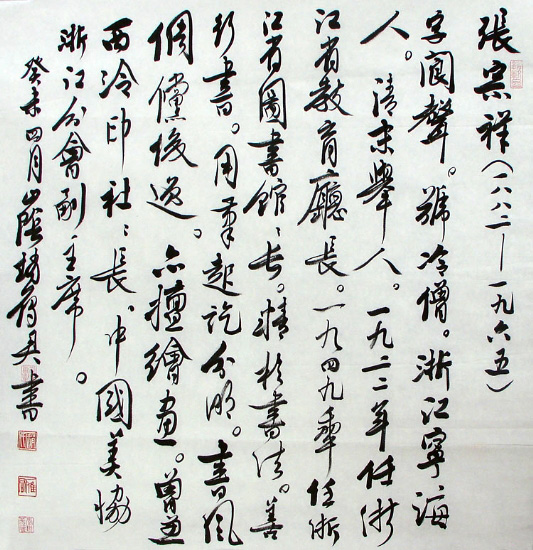 張宗祥（一八八二—一九六五）
字閬聲。號冷僧。浙江寧海
人。清末舉人。一九二二年任浙
江省教育廳長。一九四九年任浙
江省圖書館館長。精於書法。善
行書。用筆起訖分明。書風
倜儻俊逸。亦擅繪畫。曾爲
西泠印社社長、中國美協
浙江分會副主席。
癸未四月山陰 書